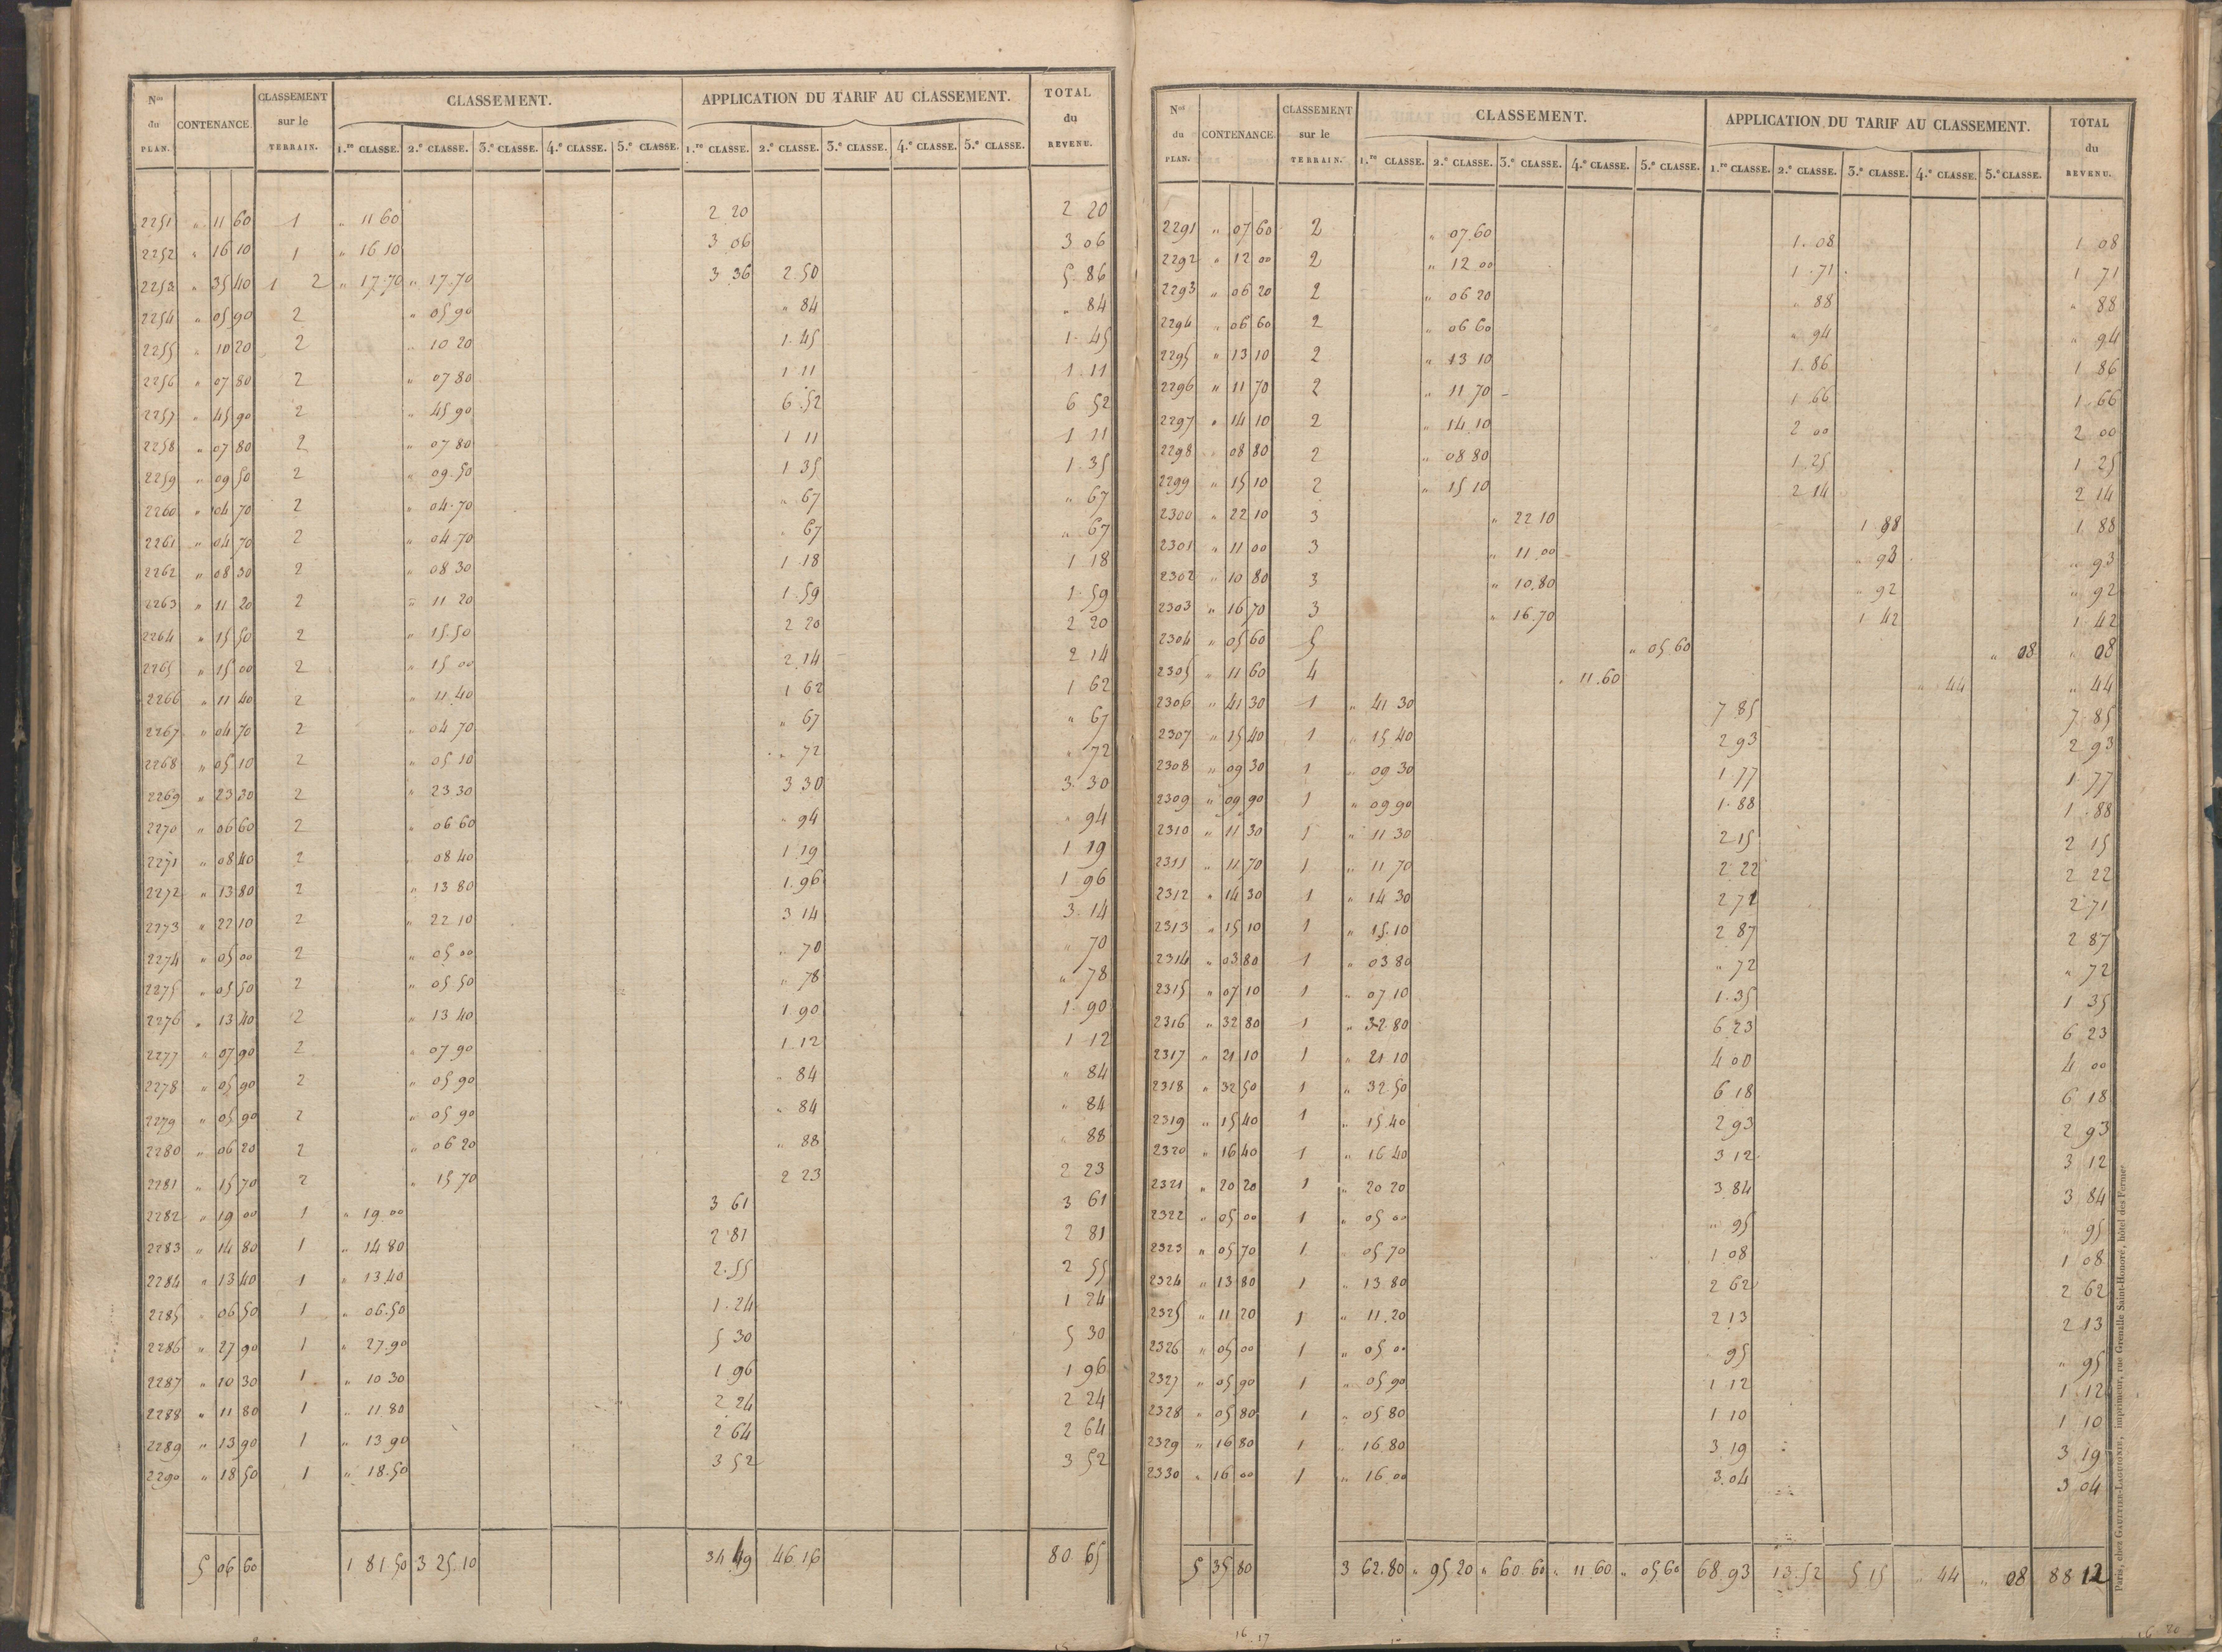 Nos du PLAN. CONTENANCE. CLASSEMENT sur le TERRAIN. CLASSEMENT. APPLICATION DU TARIF AU CLASSEMENT. TOTAL du REVENU.
1.re CLASSE. 2.e CLASSE. 3.e CLASSE. 4.e CLASSE. 5.e CLASSE. 1.re CLASSE. 2.e CLASSE. 3.e CLASSE. 4.e CLASSE. 5.e CLASSE.
2251 " 11 60 1 " 11 60 2 20 2 20
2252 " 16 10 1 " 16 10 3 06 3 06
2253 " 35 40 1 2 " 17.70 " 17.70 3 36 2.50 5 86
2254 " 05 90 2 " 05 90 " 84 " 84
2255 " 10 20 2 " 10 20 1.45 1.45
2256 " 07 80 2 " 07 80 1 11 1.11
2257 " 45 90 2 " 45 90 6.52 6 52
2258 " 07 80 2 " 07 80 1 11 1 11
2259 " 09 50 2 " 09.50 1 35 1.35
2260 " 04 70 2 " 04.70 " 67 " 67
2261 " 04 70 2 " 04 70 " 67 " 67
2262 " 08 30 2 " 08 30 1.18 1 18
2263 " 11 20 2 " 11 20 1.59 1.59
2264 " 15 50 2 " 15.50 2 20 2 20
2265 " 15 00 2 " 15 00 2.14 2 14
2266 " 11 40 2 " 11.40 1 62 1 62
2267 " 04 70 2 " 04 70 " 67 " 67
2268 " 05 10 2 " 05 10 " 72 " 72
2269 " 23 30 2 " 23 30 3 30 3.30
2270 " 06 60 2 " 06 60 " 94 " 94
2271 " 08 40 2 " 08 40 1 19 1 19
2272 " 13 80 2 " 13 80 1.96 1 96
2273 " 22 10 2 " 22 10 3 14 3.14
2274 " 05 00 2 " 05 00 " 70 " 70
2275 " 05 50 2 " 05 50 " 78 " 78
2276 " 13 40 2 " 13 40 1 90 1.90
2277 " 07 90 2 " 07 90 1.12 1 12
2278 " 05 90 2 " 05 90 " 84 " 84
2279 " 05 90 2 " 05 90 " 84 " 84
2280 " 06 20 2 " 06 20 " 88 " 88
2281 " 15 70 2 " 15 70 2 23 2 23
2282 " 19 00 1 " 19.00 3 61 3 61
2283 " 14 80 1 " 14 80 2 81 2 81
2284 " 13 40 1 " 13.40 2.55 2 55
2285 " 06 50 1 " 06.50 1.24 1 24
2286 " 27 90 1 " 27.90 5 30 5 30
2287 " 10 30 1 " 10 30 1 96 1 96
2288 " 11 80 1 " 11 80 2 24 2 24
2289 " 13 90 1 " 13 90 2 64 2 64
2290 " 18 50 1 " 18.50 3 52 3 52
5 06 60 1 81 50 3 25.10 34 49 46.16 80 65
Nos du PLAN. CONTENANCE. CLASSEMENT sur le TERRAIN. CLASSEMENT. APPLICATION DU TARIF AU CLASSEMENT. TOTAL du REVENU.
1.re CLASSE. 2.e CLASSE. 3.e CLASSE. 4.e CLASSE. 5.e CLASSE. 1.re CLASSE. 2.e CLASSE. 3.e CLASSE. 4.e CLASSE. 5.e CLASSE.
2291 " 07 60 2 " 07.60 1.08 1 08
2292 " 12 00 2 " 12 00 1.71 1 71
2293 " 06 20 2 " 06 20 " 88 " 88
2294 " 06 60 2 " 06 60 " 94 " 94
2295 " 13 10 2 " 13 10 1.86 1 86
2296 " 11 70 2 " 11 70 1 66 1.66
2297 " 14 10 2 " 14.10 2 00 2 00
2298 " 08 80 2 " 08 80 1.25 1 25
2299 " 15 10 2 " 15 10 2 14 2 14
2300 " 22 10 3 " 22 10 1 88 1 88
2301 " 11 00 3 " 11 00 " 93 " 93
2302 " 10 80 3 " 10.80 " 92 " 92
2303 " 16 70 3 " 16.70 1 42 1 42
2304 " 05 60 5 " 05 60 " 08 " 08
2305 " 11 60 4 " 11.60 " 44 " 44
2306 " 41 30 1 " 41 30 7 85 7.85
2307 " 15 40 1 " 15 40 2 93 2 93
2308 " 09 30 1 " 09 30 1.77 1.77
2309 " 09 90 1 " 09 90 1.88 1.88
2310 " 11 30 1 " 11 30 2 15 2 15
2311 " 11 70 1 " 11 70 2 22 2 22
2312 " 14 30 1 " 14 30 2 71 2 71
2313 " 15 10 1 " 15.10 2 87 2 87
2314 " 03 80 1 " 03 80 " 72 " 72
2315 " 07 10 1 " 07 10 1.35 1 35
2316 " 32 80 1 " 32 80 6 23 6 23
2317 " 21 10 1 " 21 10 4 00 4 00
2318 " 32 50 1 " 32 50 6 18 6 18
2319 " 15 40 1 " 15.40 2 93 2 93
2320 " 16 40 1 " 16 40 3 12 3 12
2321 " 20 20 1 " 20 20 3 84 3 84
2322 " 05 00 1 " 05 00 " 95 " 95
2323 " 05 70 1 " 05 70 1 08 1 08
2324 " 13 80 1 " 13 80 2 62 2 62
2325 " 11 20 1 " 11.20 2 13 2 13
2326 " 05 00 1 " 05 00 " 95 " 95
2327 " 05 90 1 " 05 90 1 12 1 12
2328 " 05 80 1 " 05 80 1 10 1 10
2329 " 16 80 1 " 16 80 3 19 3 19
2330 " 16 00 1 " 16 00 3.04 3 04
5 35 80 3 62.80 " 95 20 " 60 60 " 11 60 " 05 60 68 93 13.52 5 15 " 44 " 08 88 12
Paris, chez GAULTIER-LAGUIONIE, imprimeur, rue Grenelle Saint-Honoré, hôtel des Fermes